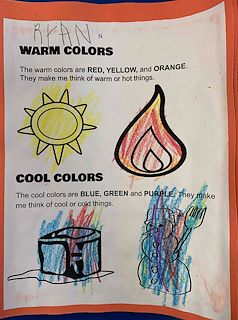 RYAN N
WARM COLORS
The warm colors are RED, YELLOW, and ORANGE.
They make me think of warm or hot things.
COOL COLORS
The cool colors are BLUE, GREEN and PURPLE. They make
me think of cool or cold things.